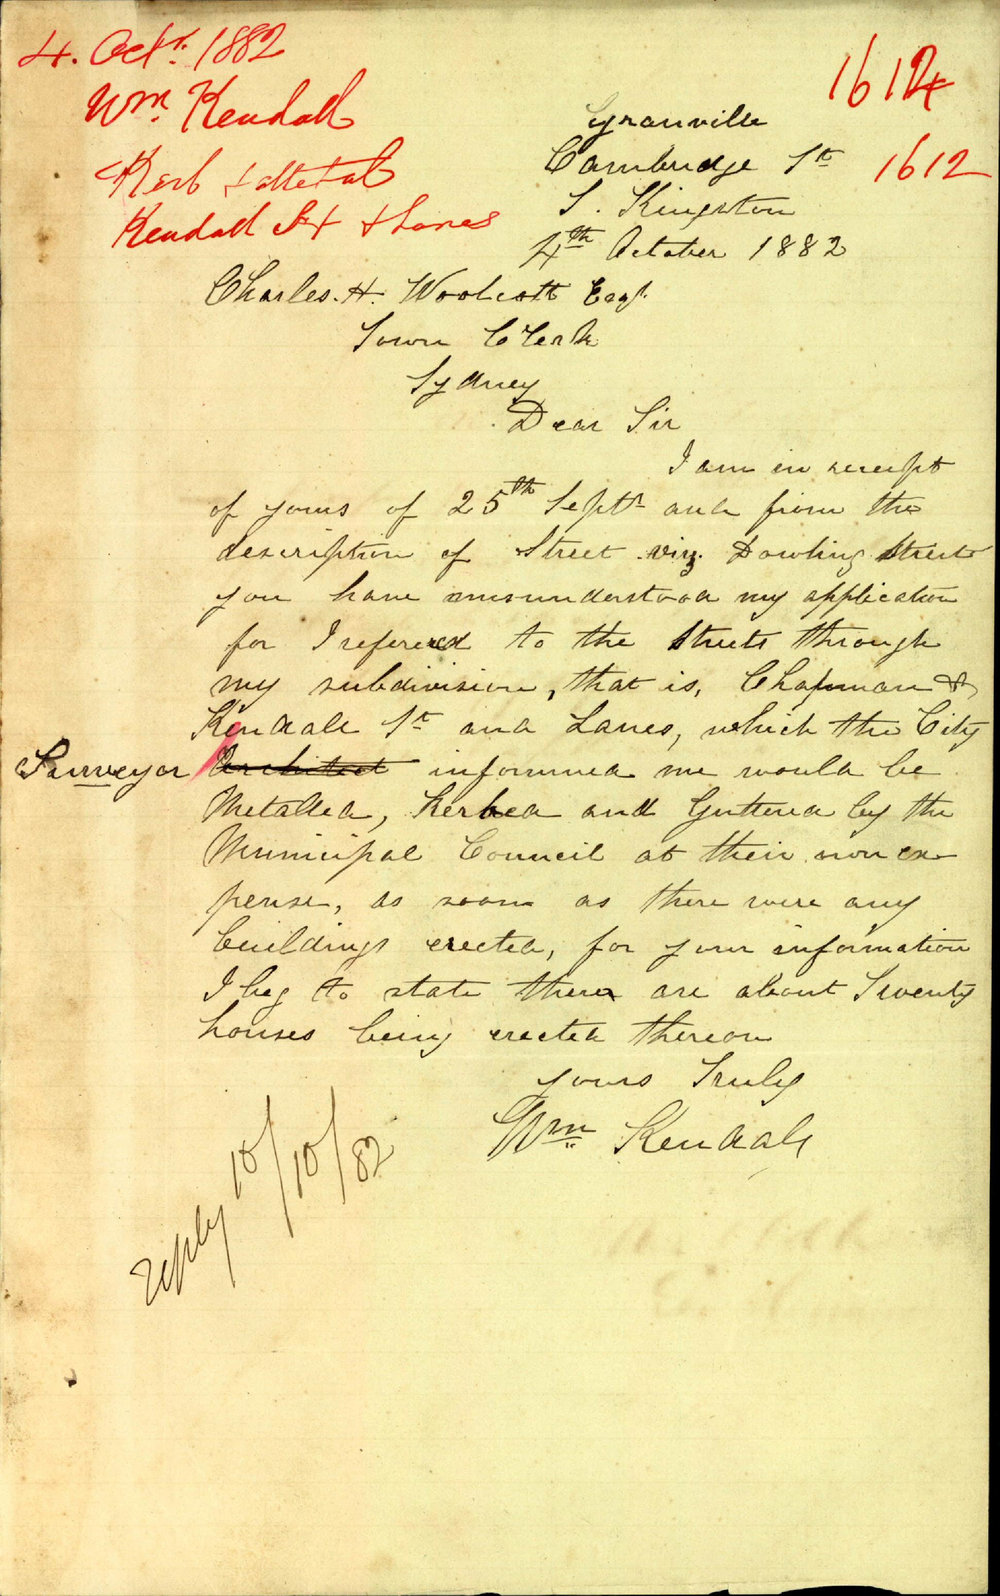 4. Octr. 1882
Wm. Kendall
Kerb & Metal
Kendall St & Lanes
1612
1612
Granville
Cambridge St
S. Kingston
4th October 1882
Charles. H. Woolcott Esqr.
Town Clerk
Sydney
Dear Sir
I am in receipt
of yours of 25th Septr and from the
description of Street viz. Dowling Street
you have misunderstood my application
for I refered to the Streets through
my subdivision, that is, Chapman &
Kendall St and Lanes, which the City
Surveyor Architect informed me would be
Metalled, Kerbed and Guttered by the
Municipal Council at their own ex-
pense, as soon as there were any
buildings erected, for your information
I beg to state there are about Twenty
houses being erected thereon
yours Truly
Wm Kendall
reply 10/10/82